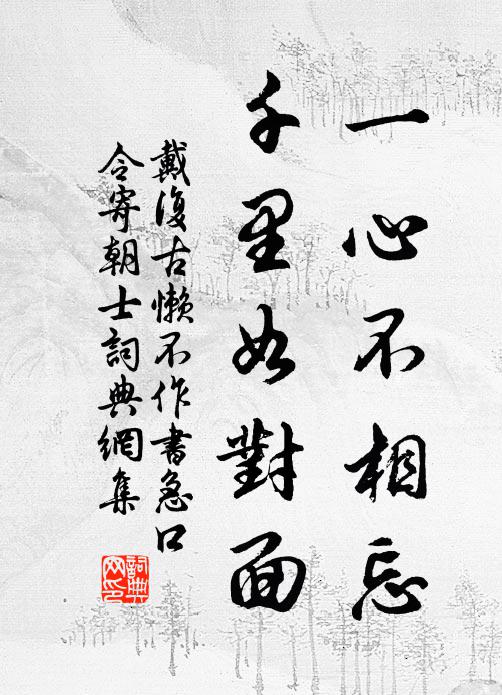 一心不相忘
千里如對面
戴復古懶不作書急口
令寄朝士詞典網集
詞典
网印